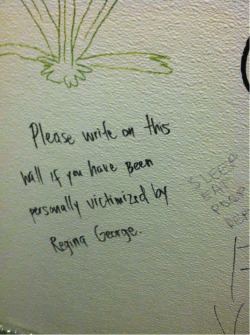 Please write on this
wall if you have been
personally victimized by
Regina George.
SLEEP
EAT